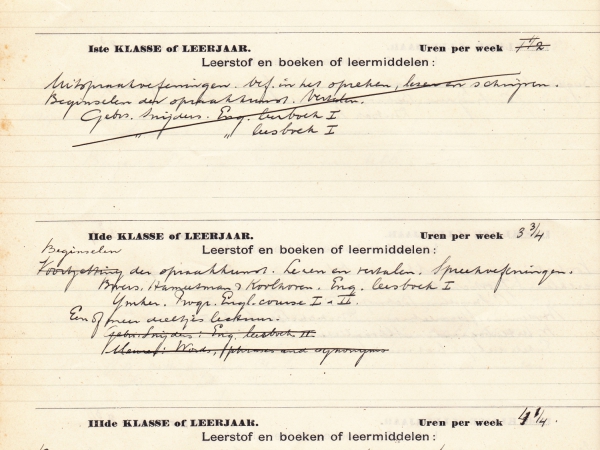 Iste KLASSE of LEERJAAR. Uren per week 1 1/2
Leerstof en boeken of leermiddelen:
Uitspraakoefeningen. Oef. in het spreken, lezen en schrijven.
Beginselen der spraakkunst. Vertalen.
Gebr. Snijders. Eng. leerboek I
" " leesboek I
IIde KLASSE of LEERJAAR. Uren per week 3 3/4
Beginselen Leerstof en boeken of leermiddelen:
Voortzetting der spraakkunst. Lezen en vertalen. Spreekoefeningen.
Koolhoven. Eng. leesboek I
Engl. course I - II.
Een of meer deeltjes lectuur.
Gebr. Snijders: Eng. leerboek II.
Words, phrases and synonyms
IIIde KLASSE of LEERJAAR. Uren per week 4 1/4.
Leerstof en boeken of leermiddelen: